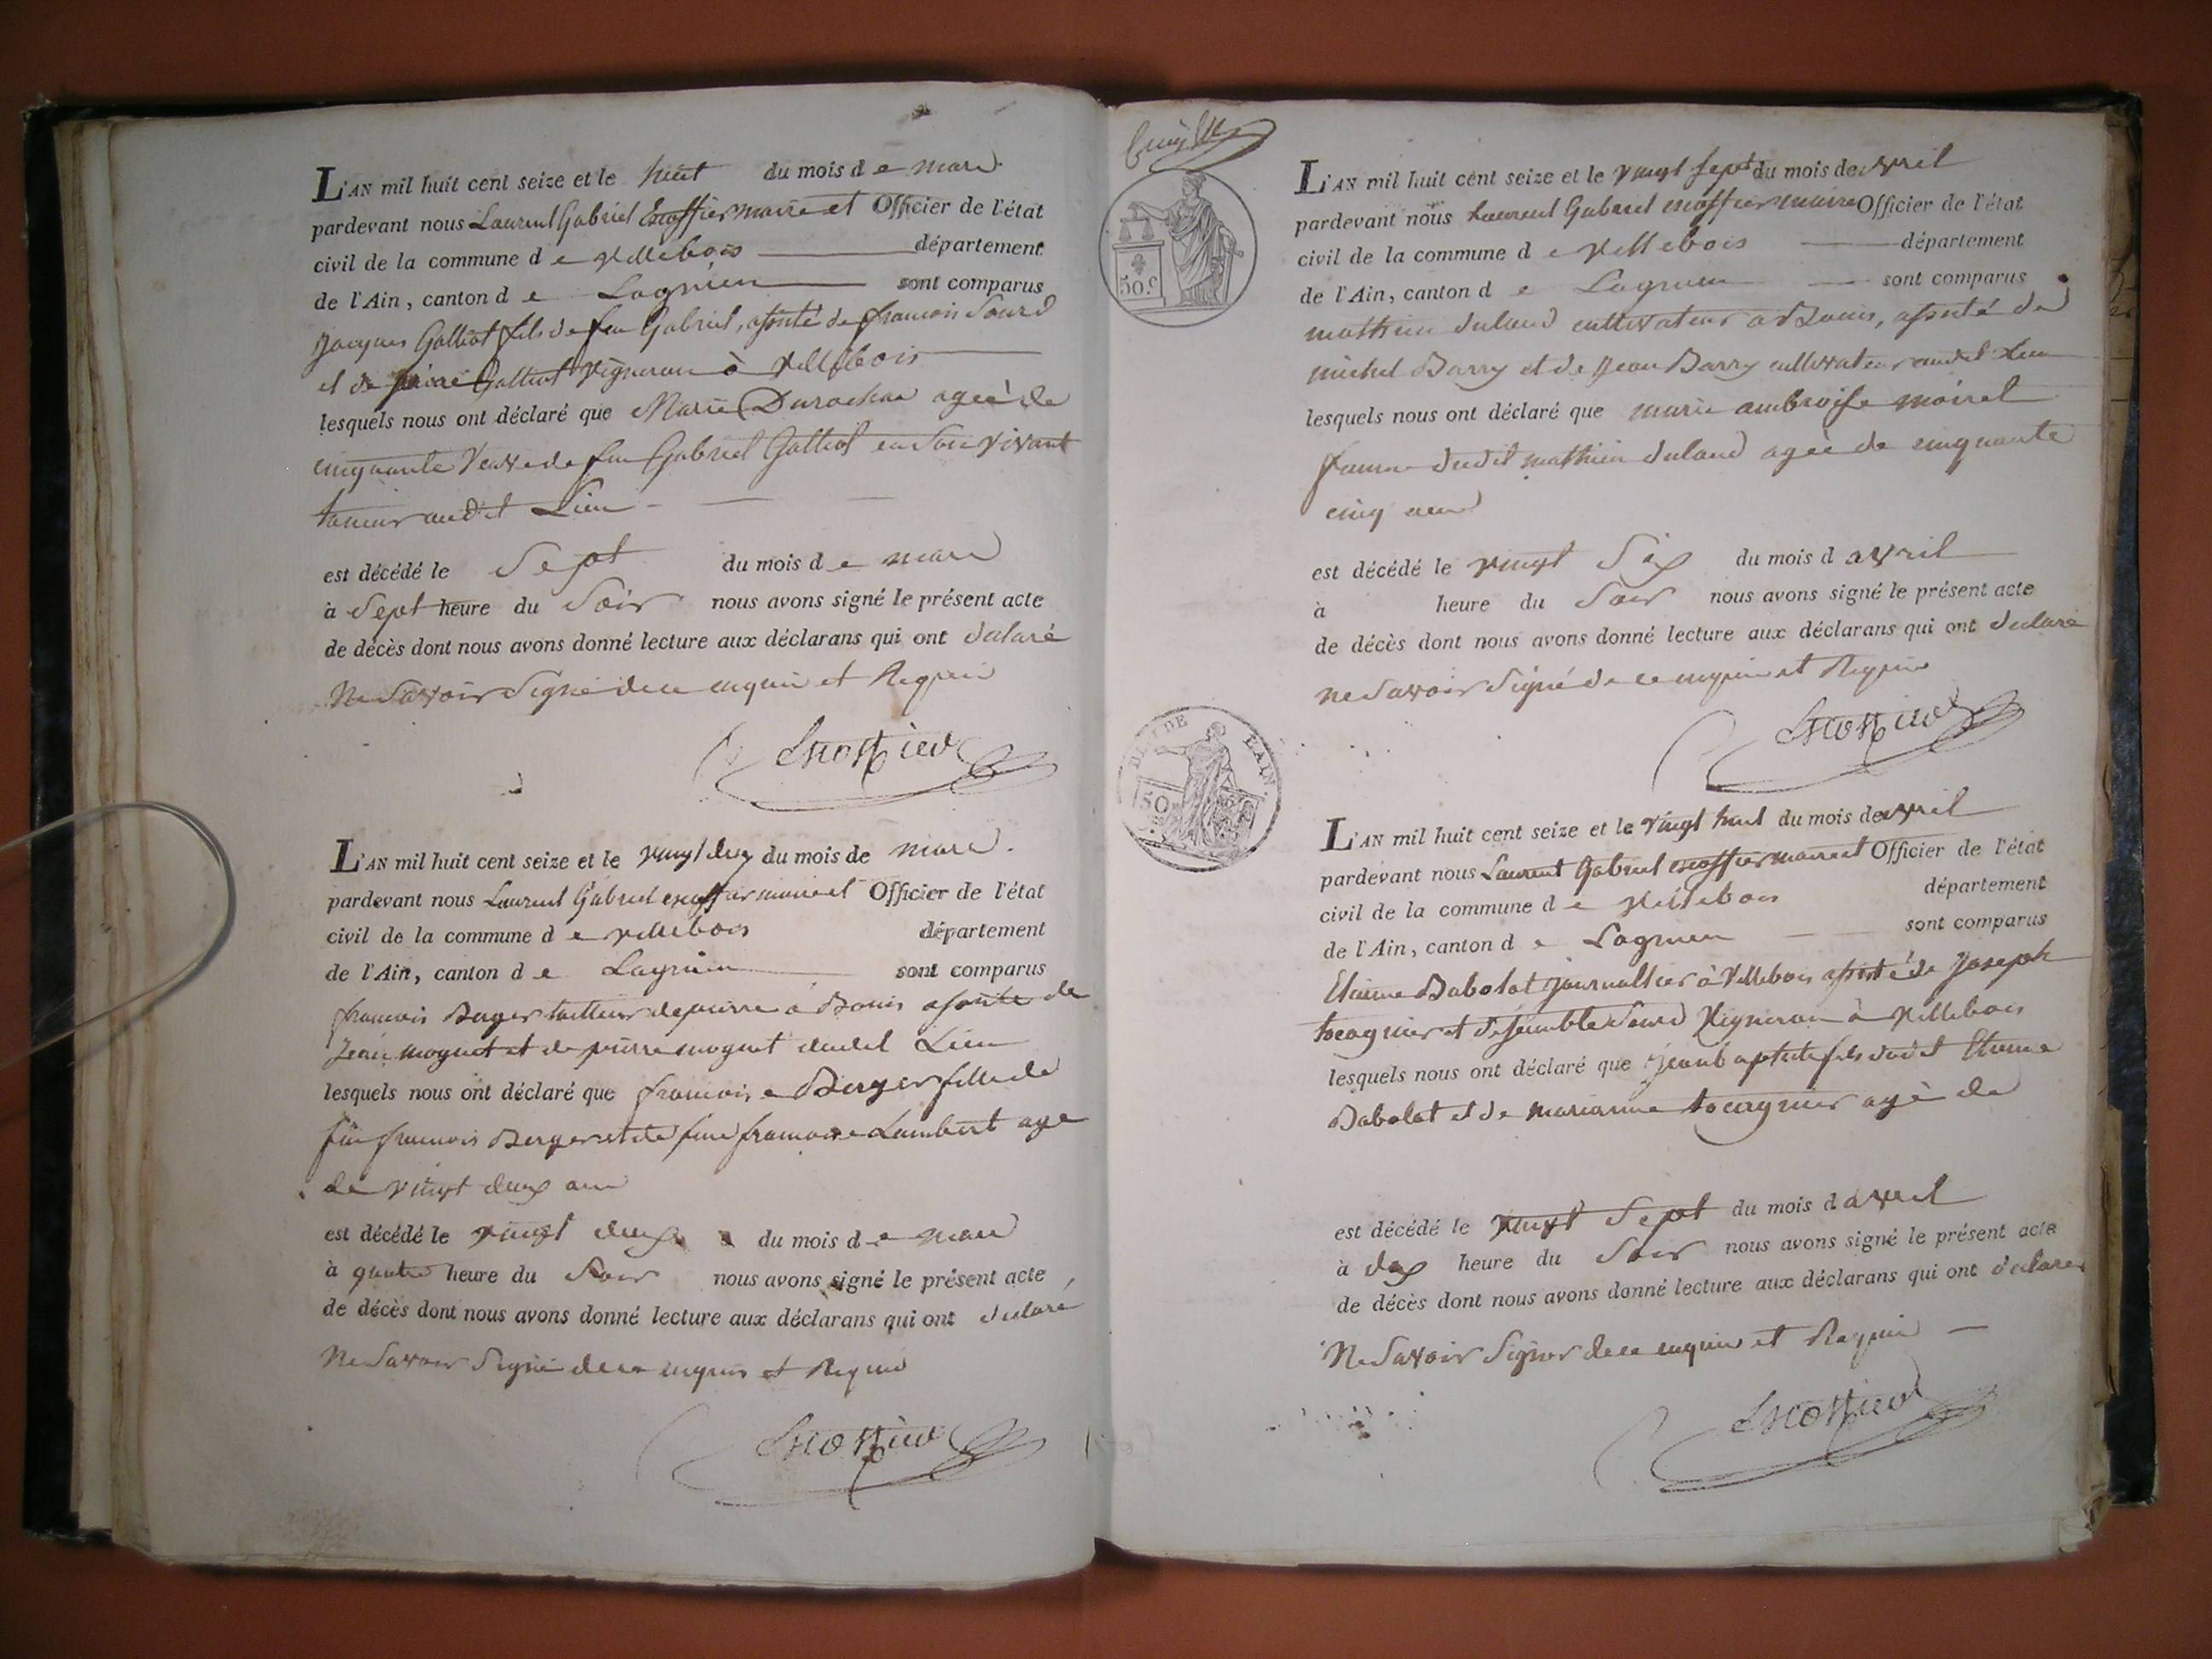 L'AN mil huit cent seize et le huit du mois d e mars
pardevant nous Laurent Gabriel Escoffier maire et Officier de l'état
civil de la commune d e Villebois département
de l'Ain, canton d e Lagnieu sont comparus
jacques Galliot fils de feu Gabriel, assisté de francois Sourd
et de pierre Galliot vigneron à Villebois
lesquels nous ont déclaré que Marie Durochat agée de
cinquante veuve de feu Gabriel Galliot en son vivant
audit Lieu
est décédé le Sept du mois d e mars
à Sept heure du Soir nous avons signé le présent acte
de décès dont nous avons donné lecture aux déclarans qui ont déclaré
Ne Savoir Signé de ce enquis et Requis
Escoffier
L'AN mil huit cent seize et le vingt deux du mois de mars
pardevant nous Laurent Gabriel escoffier maire et Officier de l'état
civil de la commune d e villebois département
de l'Ain, canton d e Lagnieu sont comparus
francois Berger tailleur de pierre à Bouis assisté de
Jean moguet et de pierre moguet dudit Lieu
lesquels nous ont déclaré que francoise Berger fille de
feu francois Berger et de feue francoise Lambert age
de vingt deux ans
est décédé le vingt deux du mois d e mars
à quatre heure du Soir nous avons signé le présent acte
de décès dont nous avons donné lecture aux déclarans qui ont déclaré
Ne Savoir Signé de ce enquis et Requis
Escoffier
50.c
L'AN mil huit cent seize et le vingt sept du mois de avril
pardevant nous Laurent Gabriel escoffier maire Officier de l'état
civil de la commune d e villebois département
de l'Ain, canton d e Lagnieu sont comparus
mathieu cultivateur à Bouis, assisté de
michel Barry et de Jean Barry cultivateur audit Lieu
lesquels nous ont déclaré que marie ambroise moirel
femme dudit mathieu agée de cinquante
cinq ans
est décédé le vingt Six du mois d avril
à heure du Soir nous avons signé le présent acte
de décès dont nous avons donné lecture aux déclarans qui ont déclaré
ne Savoir Signé de ce enquis et Requis
Escoffier
DEP. DE L'AIN.
50
L'AN mil huit cent seize et le vingt huit du mois de avril
pardevant nous Laurent Gabriel escoffier maire et Officier de l'état
civil de la commune d e villebois département
de l'Ain, canton d e Lagnieu sont comparus
Etienne Babolat journallier à Villebois assisté de Joseph
tocagnier et Sourd Vigneron à villebois
lesquels nous ont déclaré que jean baptiste fils dudit Etienne
Babolat et de marianne tocagnier agé de
est décédé le vingt Sept du mois d avril
à dix heure du Soir nous avons signé le présent acte
de décès dont nous avons donné lecture aux déclarans qui ont déclarer
Ne Savoir Signer de ce enquis et Requis
Escoffier